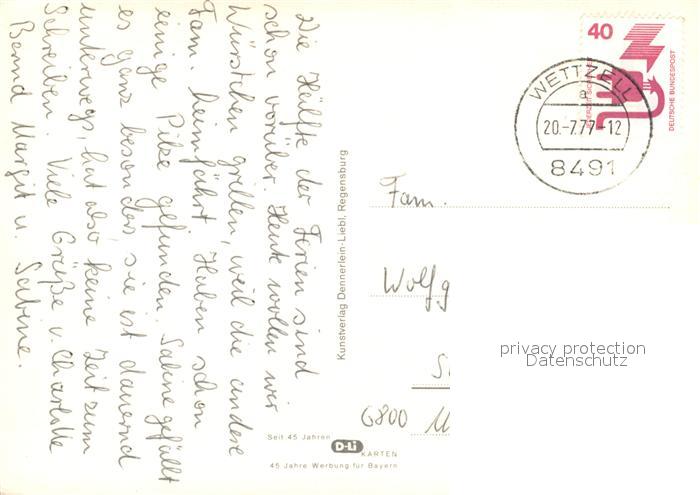 Die Hälfte der Ferien sind
schon vorüber. Heute wollen wir
Würstchen grillen, weil die andere
Fam. heimfährt. Haben schon
einige Pilze gefunden. Sabine gefällt
es ganz besonders, sie ist dauernd
unterwegs, hat also keine Zeit zum
Schreiben. Viele Grüße v. Charlotte
Bernd Margit u. Sabine.
Kunstverlag Dennerlein-Liebl, Regensburg
Seit 45 Jahren
D-Li
KARTEN
45 Jahre Werbung für Bayern
40
DEUTSCHE BUNDESPOST
WETTZELL
a
20.-7.77-12
8491
Fam.
Wolfg
6800
privacy protection
Datenschutz